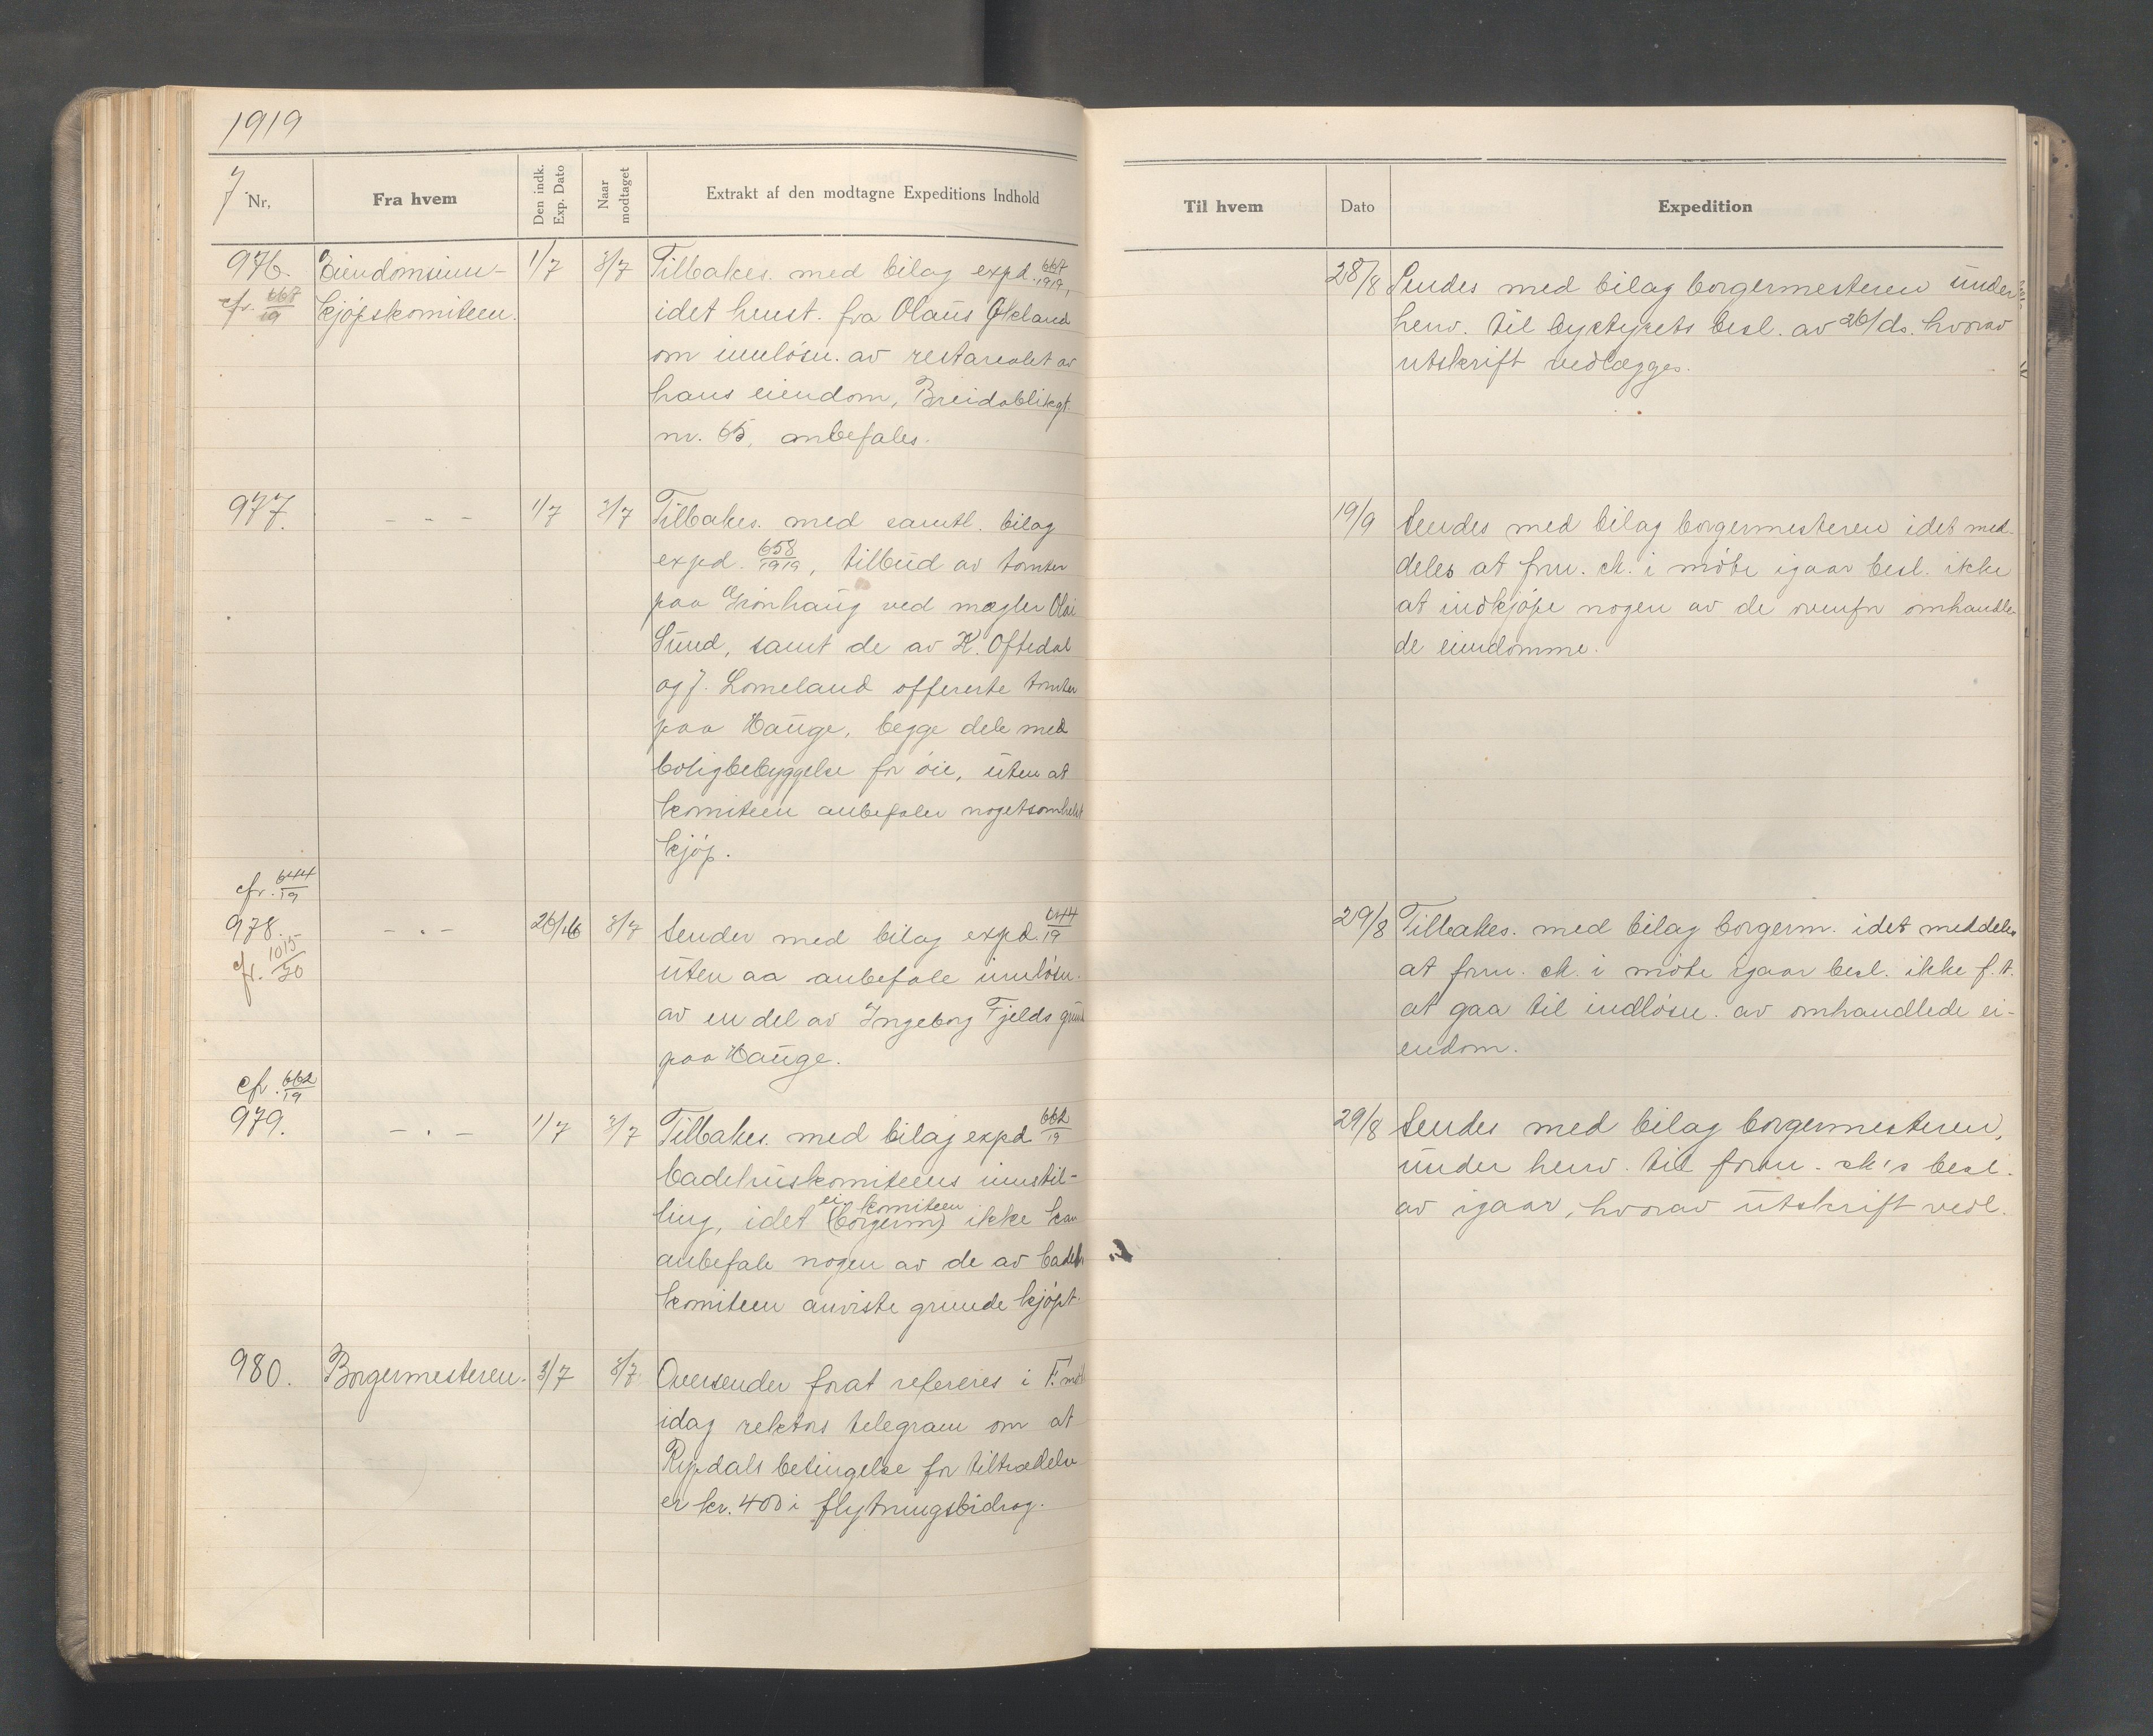 1919
7
Nr.
Fra hvem
Den indk. Exp. Dato
Naar modtaget
Extrakt af den modtagne Expeditions Indhold
976.
cfr. 667/19
Eiendomsinn-
kjøpskomiteen.
1/7
3/7
Tilbakes. med bilag expd. 667/1919,
idet henst. fra Olaus Økland
om innløsn. av restarealet av
hans eiendom, Breidablikgt.
nr. 65, anbefales.
977.
- - -
1/7
3/7
Tilbakes. med samtl. bilag
expd. 658/1919, tilbud av tomter
paa Grønhaug ved megler Olai
Sund, samt de av K. Oftedal
og J. Lomeland offererte tomter
paa Hauge, begge dele med
boligbebyggelse for øie, uten at
komiteen anbefaler nogetsomhelst
kjøp.
cfr. 644/19
978.
cfr. 1015/20
- . -
26/6
3/7
Sender med bilag expd. 644/19
uten aa anbefale innløsn.
av en del av Ingeborg Fjelds grund
paa Hauge.
cfr. 662/19
979.
- . -
1/7
3/7
Tilbakes. med bilag expd 662/19
badehuskomiteens innstil-
ling, idet (borgerm) ei. komiteen ikke kan
anbefale nogen av de av badeh.
komiteen anviste grunde kjøpt.
980.
Borgermesteren.
3/7
3/7
Oversender forat refereres i F. møte
idag rektors telegram om at
Rypdals betingelse for tiltrædelse
er kr. 400 i flytningsbidrag.
Til hvem
Dato
Expedition
28/8
Sendes med bilag borgermesteren under
henv. til bystyrets besl. av 26/ds. hvorav
utskrift vedlægges.
19/9
Sendes med bilag borgermesteren idet med-
deles at frm. sk. i møte igaar besl. ikke
at indkjøpe nogen av de ovenfor omhandle-
de eiendomme.
29/8
Tilbakes. med bilag borgerm. idet meddeles
at frm. sk. i møte igaar besl. ikke f.t.
at gaa til indløsn. av omhandlede ei-
endom.
29/8
Sendes med bilag borgermesteren,
under henv. til form. sk's besl.
av igaar, hvorav utskrift vedl.